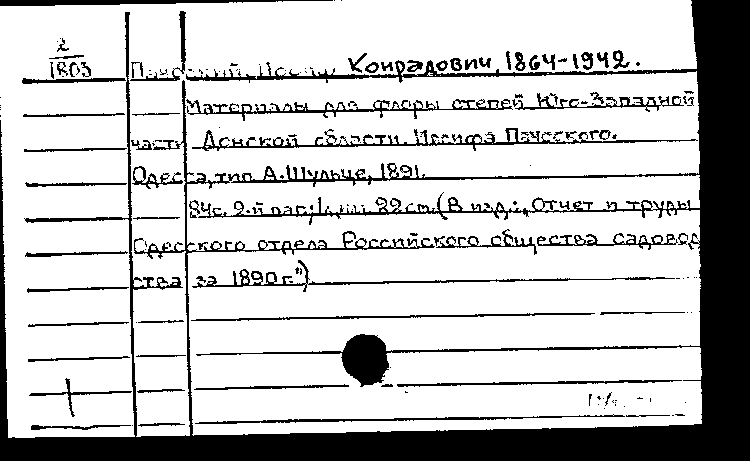 2
1803
Пачоский, Иосиф Конрадович, 1864-1942.
Материалы для флоры степей Юго-Западной
части Донской области. Иосифа Пачоского.
Одесса, тип А. Шульце, 1891.
84с. 2-й паг; 22 см. (В изд.: „Отчет и труды
Одесского отдела Российского общества садовод
ства за 1890 г.")